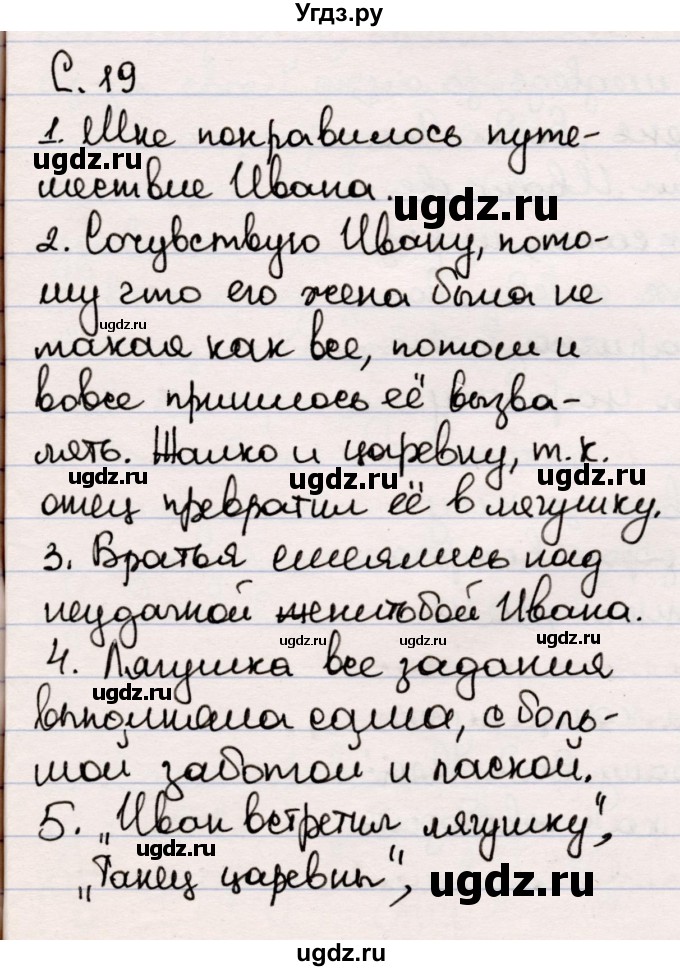 Угдз.ру
С. 19
1. Мне понравилось путе-
шествие Ивана.
ugdz.ru
ugdz.ru
2. Сочувствую Ивану, пото-
му что его жена была не
ugdz.ru
такая как все, потом и
вовсе пришлось её вызва-
лять. Жалко и царевну, т. к.
ugdz.ru
ugdz.ru
ugdz.ru
отец превратил её в лягушку.
3. Братья смеялись над
неудачной женитьбой Ивана.
ugdz.ru
ugdz.ru
ugdz.ru
4. Лягушка все задания
ugdz.ru
выполняла сама, с боль-
шой заботой и лаской.
5. "Иван встретил лягушку",
ugdz.ru
"Танец царевны",
ugdz.ru
ugdz.ru